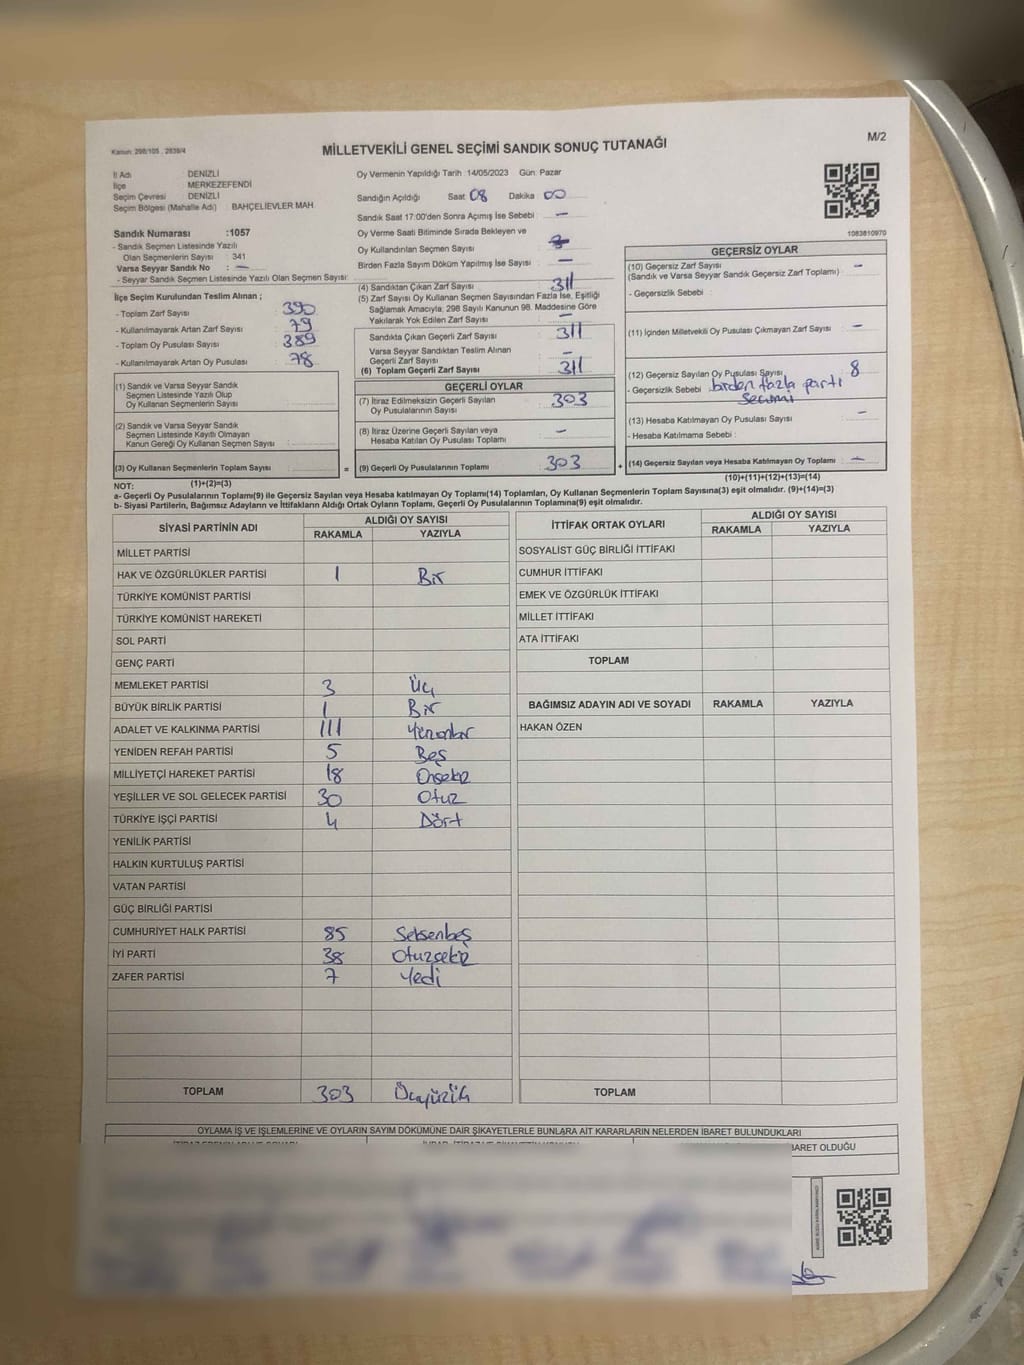 Kanun: 298/105 , 2839/4
MİLLETVEKİLİ GENEL SEÇİMİ SANDIK SONUÇ TUTANAĞI
M/2
İl Adı DENİZLİ
İlçe MERKEZEFENDİ
Seçim Çevresi DENİZLİ
Seçim Bölgesi (Mahalle Adı) : BAHÇELİEVLER MAH.
Sandık Numarası :1057
- Sandık Seçmen Listesinde Yazılı
Olan Seçmenlerin Sayısı : 341
Varsa Seyyar Sandık No : —
- Seyyar Sandık Seçmen Listesinde Yazılı Olan Seçmen Sayısı:
İlçe Seçim Kurulundan Teslim Alınan ;
- Toplam Zarf Sayısı : 390
- Kullanılmayarak Artan Zarf Sayısı : 79
- Toplam Oy Pusulası Sayısı : 389
- Kullanılmayarak Artan Oy Pusulası : 78
(1) Sandık ve Varsa Seyyar Sandık
Seçmen Listesinde Yazılı Olup
Oy Kullanan Seçmenlerin Sayısı :
(2) Sandık ve Varsa Seyyar Sandık
Seçmen Listesinde Kayıtlı Olmayan
Kanun Gereği Oy Kullanan Seçmen Sayısı :
(3) Oy Kullanan Seçmenlerin Toplam Sayısı :
Oy Vermenin Yapıldığı Tarih :14/05/2023 Gün: Pazar
Sandığın Açıldığı Saat 08 Dakika 00
Sandık Saat 17:00'den Sonra Açımış İse Sebebi : —
Oy Verme Saati Bitiminde Sırada Bekleyen ve
Oy Kullandırılan Seçmen Sayısı :
Birden Fazla Sayım Döküm Yapılmış İse Sayısı : —
(4) Sandıktan Çıkan Zarf Sayısı : 311
(5) Zarf Sayısı Oy Kullanan Seçmen Sayısından Fazla İse, Eşitliği
Sağlamak Amacıyla; 298 Sayılı Kanunun 98. Maddesine Göre
Yakılarak Yok Edilen Zarf Sayısı : —
Sandıkta Çıkan Geçerli Zarf Sayısı : 311
Varsa Seyyar Sandıktan Teslim Alınan
Geçerli Zarf Sayısı : —
(6) Toplam Geçerli Zarf Sayısı : 311
GEÇERLİ OYLAR
(7) İtiraz Edilmeksizin Geçerli Sayılan
Oy Pusulalarının Sayısı : 303
(8) İtiraz Üzerine Geçerli Sayılan veya
Hesaba Katılan Oy Pusulası Toplamı : —
= (9) Geçerli Oy Pusulalarının Toplamı : 303
1083810970
GEÇERSİZ OYLAR
(10) Geçersiz Zarf Sayısı : —
(Sandık ve Varsa Seyyar Sandık Geçersiz Zarf Toplamı)
- Geçersizlik Sebebi :
(11) İçinden Milletvekili Oy Pusulası Çıkmayan Zarf Sayısı : —
(12) Geçersiz Sayılan Oy Pusulası Sayısı : 8
- Geçersizlik Sebebi : birden fazla parti
Seçimi
(13) Hesaba Katılmayan Oy Pusulası Sayısı : —
- Hesaba Katılmama Sebebi :
+ (14) Geçersiz Sayılan veya Hesaba Katılmayan Oy Toplamı : —
NOT: (1)+(2)=(3)
(10)+(11)+(12)+(13)=(14)
a- Geçerli Oy Pusulalarının Toplamı(9) ile Geçersiz Sayılan veya Hesaba katılmayan Oy Toplamı(14) Toplamları, Oy Kullanan Seçmenlerin Toplam Sayısına(3) eşit olmalıdır. (9)+(14)=(3)
b- Siyasi Partilerin, Bağımsız Adayların ve İttifakların Aldığı Ortak Oyların Toplamı, Geçerli Oy Pusulalarının Toplamına(9) eşit olmalıdır.
SİYASİ PARTİNİN ADI ALDIĞI OY SAYISI
RAKAMLA YAZIYLA
MİLLET PARTİSİ
HAK VE ÖZGÜRLÜKLER PARTİSİ 1 Bir
TÜRKİYE KOMÜNİST PARTİSİ
TÜRKİYE KOMÜNİST HAREKETİ
SOL PARTİ
GENÇ PARTİ
MEMLEKET PARTİSİ 3 Üç
BÜYÜK BİRLİK PARTİSİ 1 Bir
ADALET VE KALKINMA PARTİSİ 111
YENİDEN REFAH PARTİSİ 5 Beş
MİLLİYETÇİ HAREKET PARTİSİ 18 Onsekiz
YEŞİLLER VE SOL GELECEK PARTİSİ 30 Otuz
TÜRKİYE İŞÇİ PARTİSİ 4 Dört
YENİLİK PARTİSİ
HALKIN KURTULUŞ PARTİSİ
VATAN PARTİSİ
GÜÇ BİRLİĞİ PARTİSİ
CUMHURİYET HALK PARTİSİ 85 Seksenbeş
İYİ PARTİ 38 Otuzsekiz
ZAFER PARTİSİ 7 Yedi
TOPLAM 303 Üçyüzüç
İTTİFAK ORTAK OYLARI ALDIĞI OY SAYISI
RAKAMLA YAZIYLA
SOSYALİST GÜÇ BİRLİĞİ İTTİFAKI
CUMHUR İTTİFAKI
EMEK VE ÖZGÜRLÜK İTTİFAKI
MİLLET İTTİFAKI
ATA İTTİFAKI
TOPLAM
BAĞIMSIZ ADAYIN ADI VE SOYADI RAKAMLA YAZIYLA
HAKAN ÖZEN
TOPLAM
OYLAMA İŞ VE İŞLEMLERİNE VE OYLARIN SAYIM DÖKÜMÜNE DAİR ŞİKAYETLERLE BUNLARA AİT KARARLARIN NELERDEN İBARET BULUNDUKLARI
BARET OLDUĞU